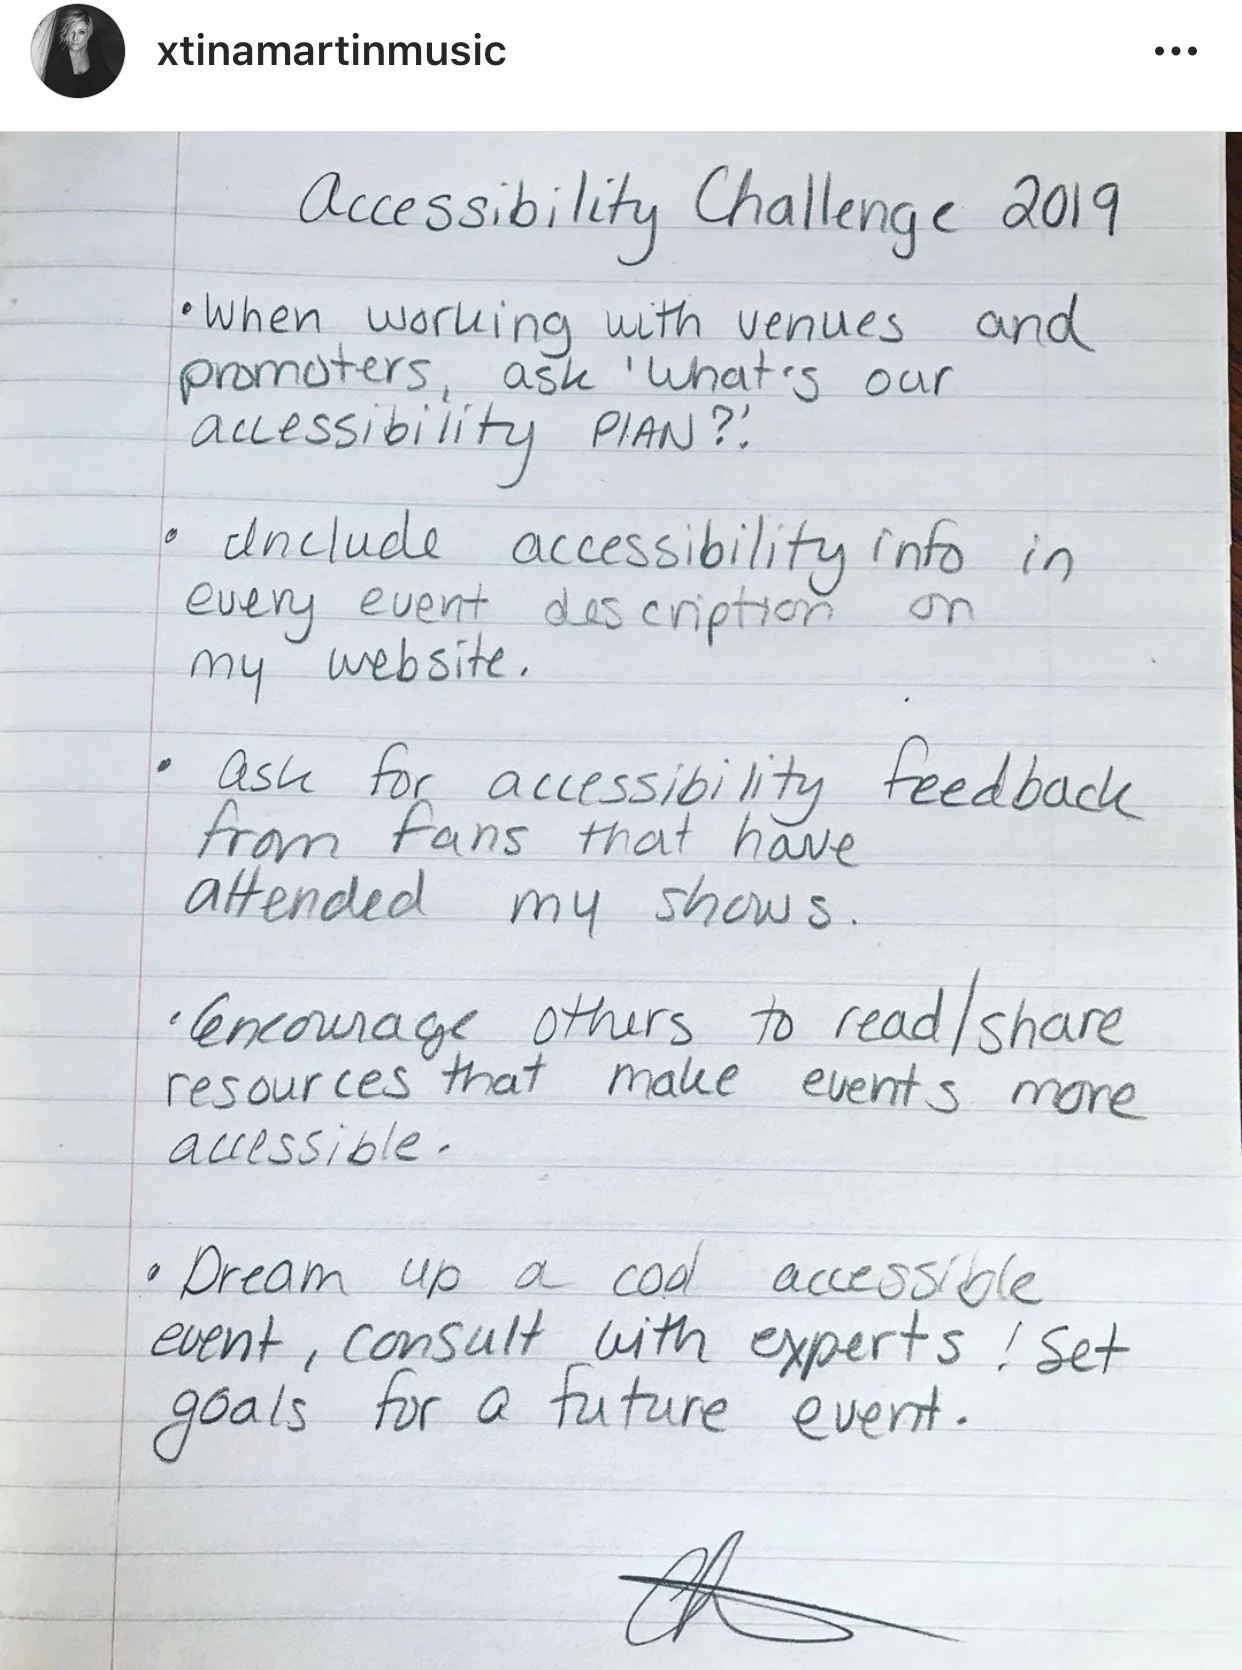 xtinamartinmusic
Accessibility Challenge 2019
• When working with venues and
promoters, ask 'What's our
accessibility PLAN?'
• Include accessibility info in
every event description on
my website.
• Ask for accessibility feedback
from fans that have
attended my shows.
• Encourage others to read/share
resources that make events more
accessible.
• Dream up a cool accessible
event, consult with experts! Set
goals for a future event.